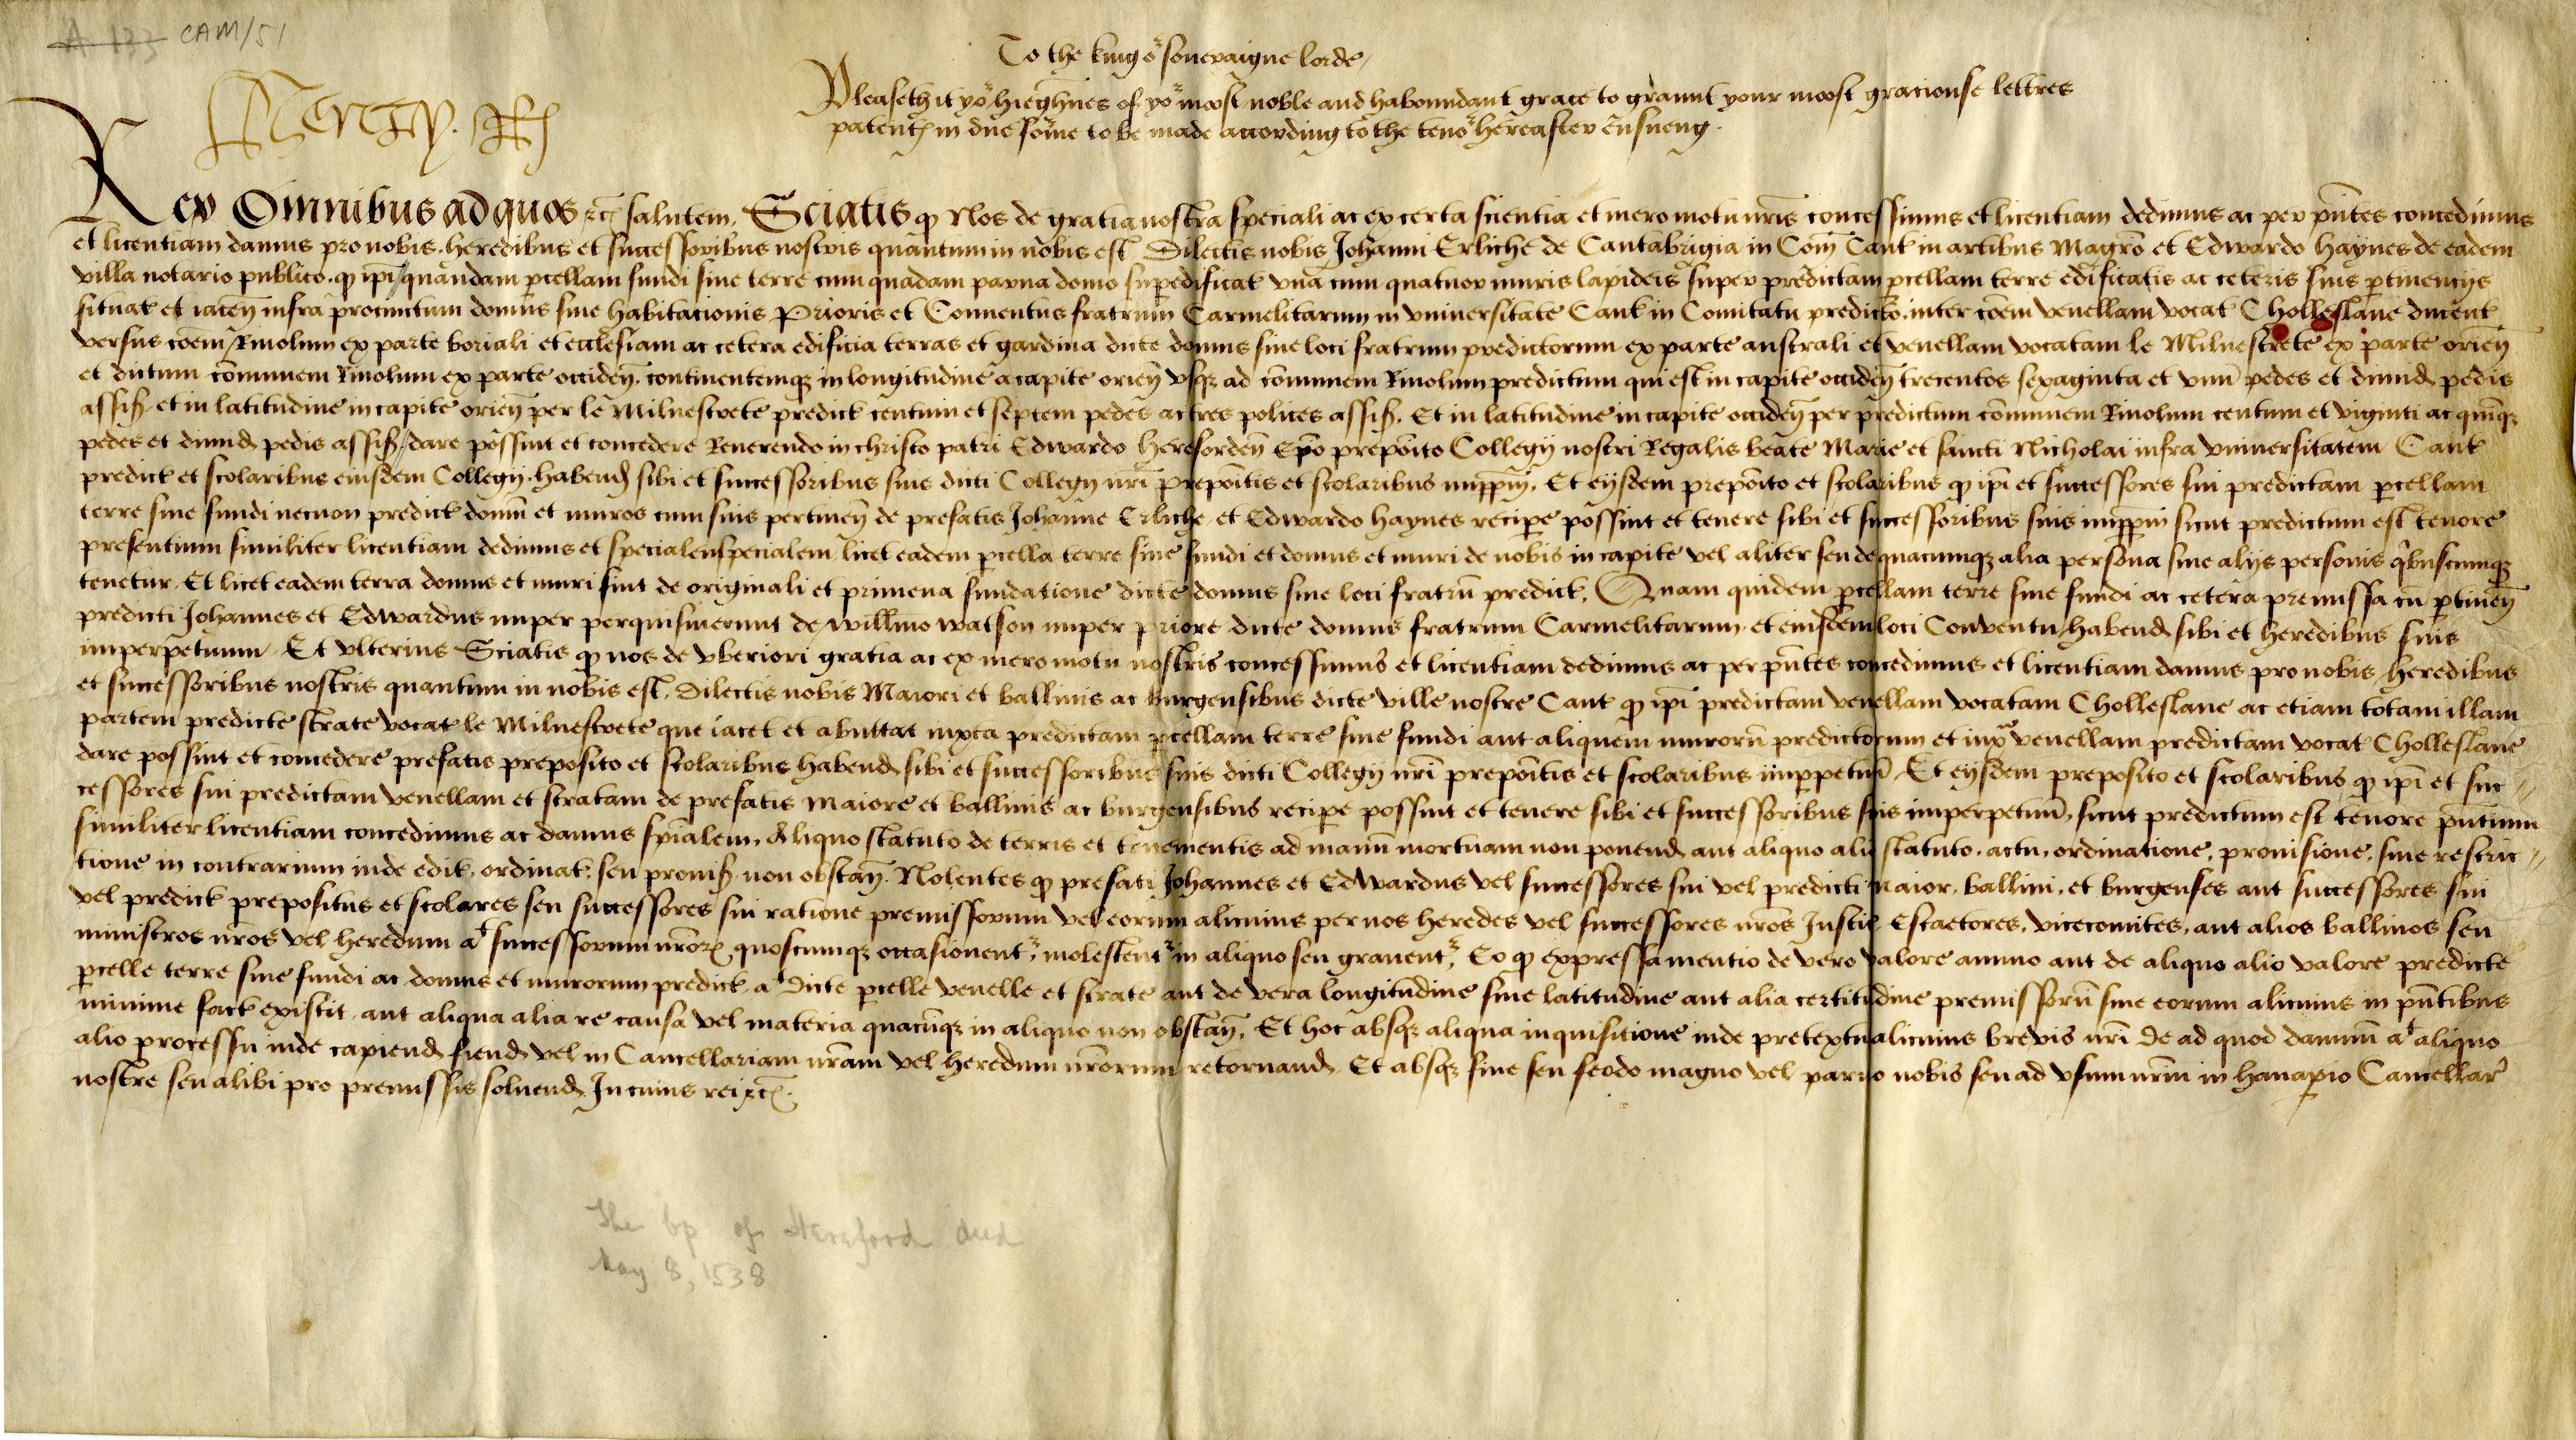 A 133 CAM/51
To the king oʳ souevaigne lorde,
Pleaseth it yoʳ hieghnes of yoʳ moost noble and haboundant grace to graunt your moost graciouse lettres
patentꝭ in due fo͞rme to be made accovding to the tenoʳ hereaftev ensueng.
Henry R
Rex Omnibus ad quos ⁊cꝭ salutem. Sciatis qꝫ Nos de gratia nostra speciali ac ex certa scientia et mero motu nr̄is concessimus et licentiam dedimus ac per pn̄tes concedimus
et licentiam damus pro nobis heredibus et successoribus nostris quantum in nobis est Dilectis nobis Johanni Erliche de Cantabrigia in Com̄ Cant in artibus Magr̄o et Edwardo haynes de eadem
villa notario publico. qꝫ ip̄i quandam ꝑcellam fundi siue terre cum quadam parua domo suꝑedificat vna cum quatuor muris lapideis super predictam ꝑcellam terre edificatis ac ceteris suis ꝑtinencijs
situat et iacen̄ infra precinctum domus siue habitacionis Prioris et Conuentus fratrum Carmelitarum in vniuersitate Cant in Comitatu predicto. inter cōem venellam vocat Cholleslane ducent
versus cōem Riuolum ex parte boriali et ecclesiam ac cetera edificia terras et gardina dicte domus siue loci fratrum predictorum ex parte australi et venellam vocatam le Milnestrete ex parte orien̄
et dictum cōmunem Riuolum ex parte occiden̄. continentemqꝫ in longitudine a capite orien̄ vsqꝫ ad cōmunem Riuolum predictum qui est in capite occiden̄ trecentos sexaginta et vnū pedes et dimid pedis
assiſ et in latitudine in capite orien̄ per le Milnestrete predict centum et septem pedes ac tres polices assiſ. Et in latitudine in capite occiden̄ per predictum cōmunem Riuolum centum et viginti ac quinqꝫ
pedes et dimid pedis assiſ / dare possint et concedere Reuerendo in christo patri Edwardo hereforden̄ Ep̄o prepōito Collegij nostri Regalis beate Marie et sancti Nicholai infra vniuersitatem Cant
predict et scolaribus eiusdem Collegij. habend sibi et successoribus suis dicti Collegij nr̄i prepōitis et scolaribus imꝑpm̄. Et eijsdem prepōito et scolaribus qꝫ ip̄i et successores sui predictam ꝑcellam
terre siue fundi necnon predict domū et muros cum suis pertinen̄ de prefatis Johanne Erliche et Edwardo haynes reciꝑe possint et tenere sibi et successoribus suis imꝑpm̄ sicut predictum est tenore
presentium similiter licentiam dedimus et specialenspecialem, licet eadem ꝑcella terre siue fundi et domus et muri de nobis in capite vel aliter seu de quacumqꝫ alia persona siue alijs personis qͥbuscumqꝫ
tenetur. Et licet eadem terra domus et muri sint de originali et primeua fundatione dicte domus siue loci fratrū predict. Quam quidem ꝑcellam terre siue fundi ac cetera premissa cū ꝑtinen̄
predicti Johannes et Edwardus nuper perquisiuerunt de Willmo Watson nuper priore dicte domus fratrum Carmelitarum et eiusdem loci Conventu habend sibi et heredibus suis
imperpetuum. Et vlterius Sciatis qꝫ nos de vberiori gratia ac ex mero motu nostris concessimus et licentiam dedimus ac per pn̄tes concedimus et licentiam damus pro nobis heredibus
et successoribus nostris quantum in nobis est. Dilectis nobis Maiori et balliuis ac burgensibus dicte ville nostre Cant qꝫ ip̄i predictam venellam vocatam Cholleslane ac etiam totam illam
partem predicte strate vocat le Milnestrete que iacet et abuttat iuxta predictam ꝑcellam terre siue fundi aut aliquem murorū predictorum et iuxᵃ venellam predictam vocat Cholleslane
dare possint et concedere prefatis preposito et scolaribus habend sibi et successoribus suis dicti Collegij nr̄i prepōitis et scolaribus imꝑpetuū. Et eijsdem preposito et scolaribus qꝫ ip̄i et suc-
cessores sui predictam venellam et stratam de prefatis maiore et balliuis ac burgensibus reciꝑe possint et tenere sibi et successoribus suis imperpetuū, sicut predictum est tenore pn̄tium
similiter licentiam concedimus ac damus sp̄ialem. Aliquo statuto de terris et tenementis ad manū mortuam non ponend aut aliquo alio statuto. actu, ordinatione, prouisione, siue restric-
tione in contrarium inde edit, ordinat, seu prouiſ non obstan̄. Nolentes qꝫ prefati Johannes et Edwardus vel successores sui vel predicti maior, balliui, et burgenses aut successores sui
vel predict prepositus et scolares seu successores sui ratione premissorum vel eorum alicuius per nos heredes vel successores nr̄os Justic Escaetores, vicecomites, aut alios balliuos seu
ministros nr̄os vel heredum aᵗ successorum nr̄orꝝ quoscumqꝫ occasionentʳ, molestentʳ in aliquo seu grauentʳ, Eo qꝫ expressa mentio de vero valore annuo aut de aliquo alio valore predicte
ꝑcelle terre siue fundi ac domus et murorum predict aᵗ dicte ꝑcelle venelle et strate aut de vera longitudine siue latitudine aut alia certitudine premissorū siue eorum alicuius in pn̄tibus
minime fact existit. aut aliqua alia re causa vel materia quacūqꝫ in aliquo non obstan̄. Et hoc absqꝫ aliqua inquisitione inde pretextu alicuius brevis nr̄i de ad quod damnū aᵗ aliquo
alio processu inde capiend fiend vel in Cancellariam nr̄am vel heredum nr̄orum retornand. Et absqꝫ fine seu feodo magno vel paruo nobis seu ad vsum nr̄m in hanaꝑio Cancellarˢ
nostre seu alibi pro premissis soluend. In cuius rei ⁊cꝭ.
The bp of Hereford died
May 8, 1538